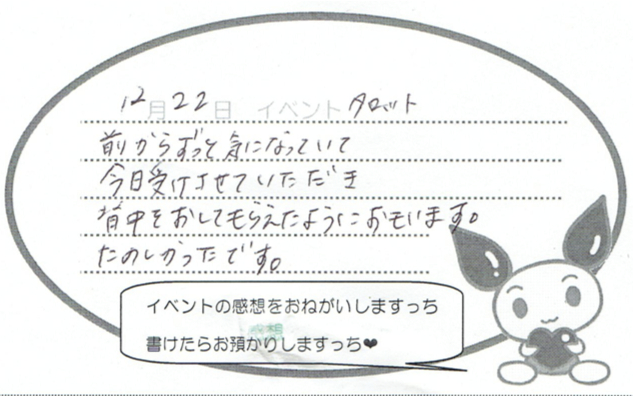 12月22日 イベント タロット
前からずっと気になっていて
今日受けさせていただき
背中をおしてもらえたようにおもいます。
たのしかったです。
イベントの感想をおねがいしますっち
書けたらお預かりしますっち❤